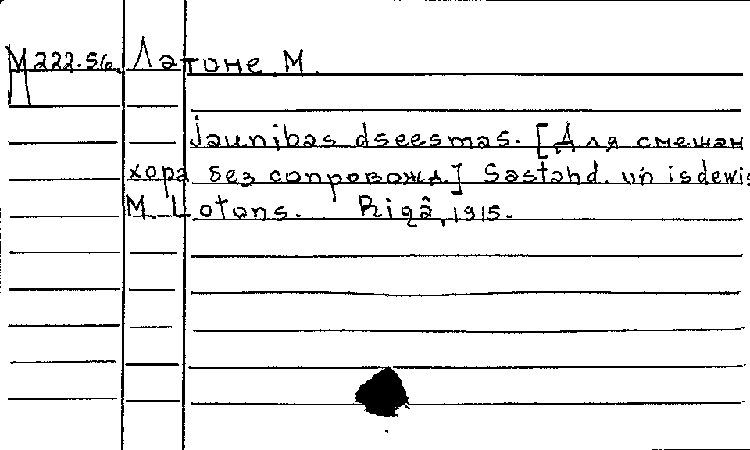 M 222.56. Латоне М.
Jaunibas dseesmas. [Для смешан
хора без сопровожд.] Sastahd. un isdewis
M. Lotans. Rigâ, 1915.